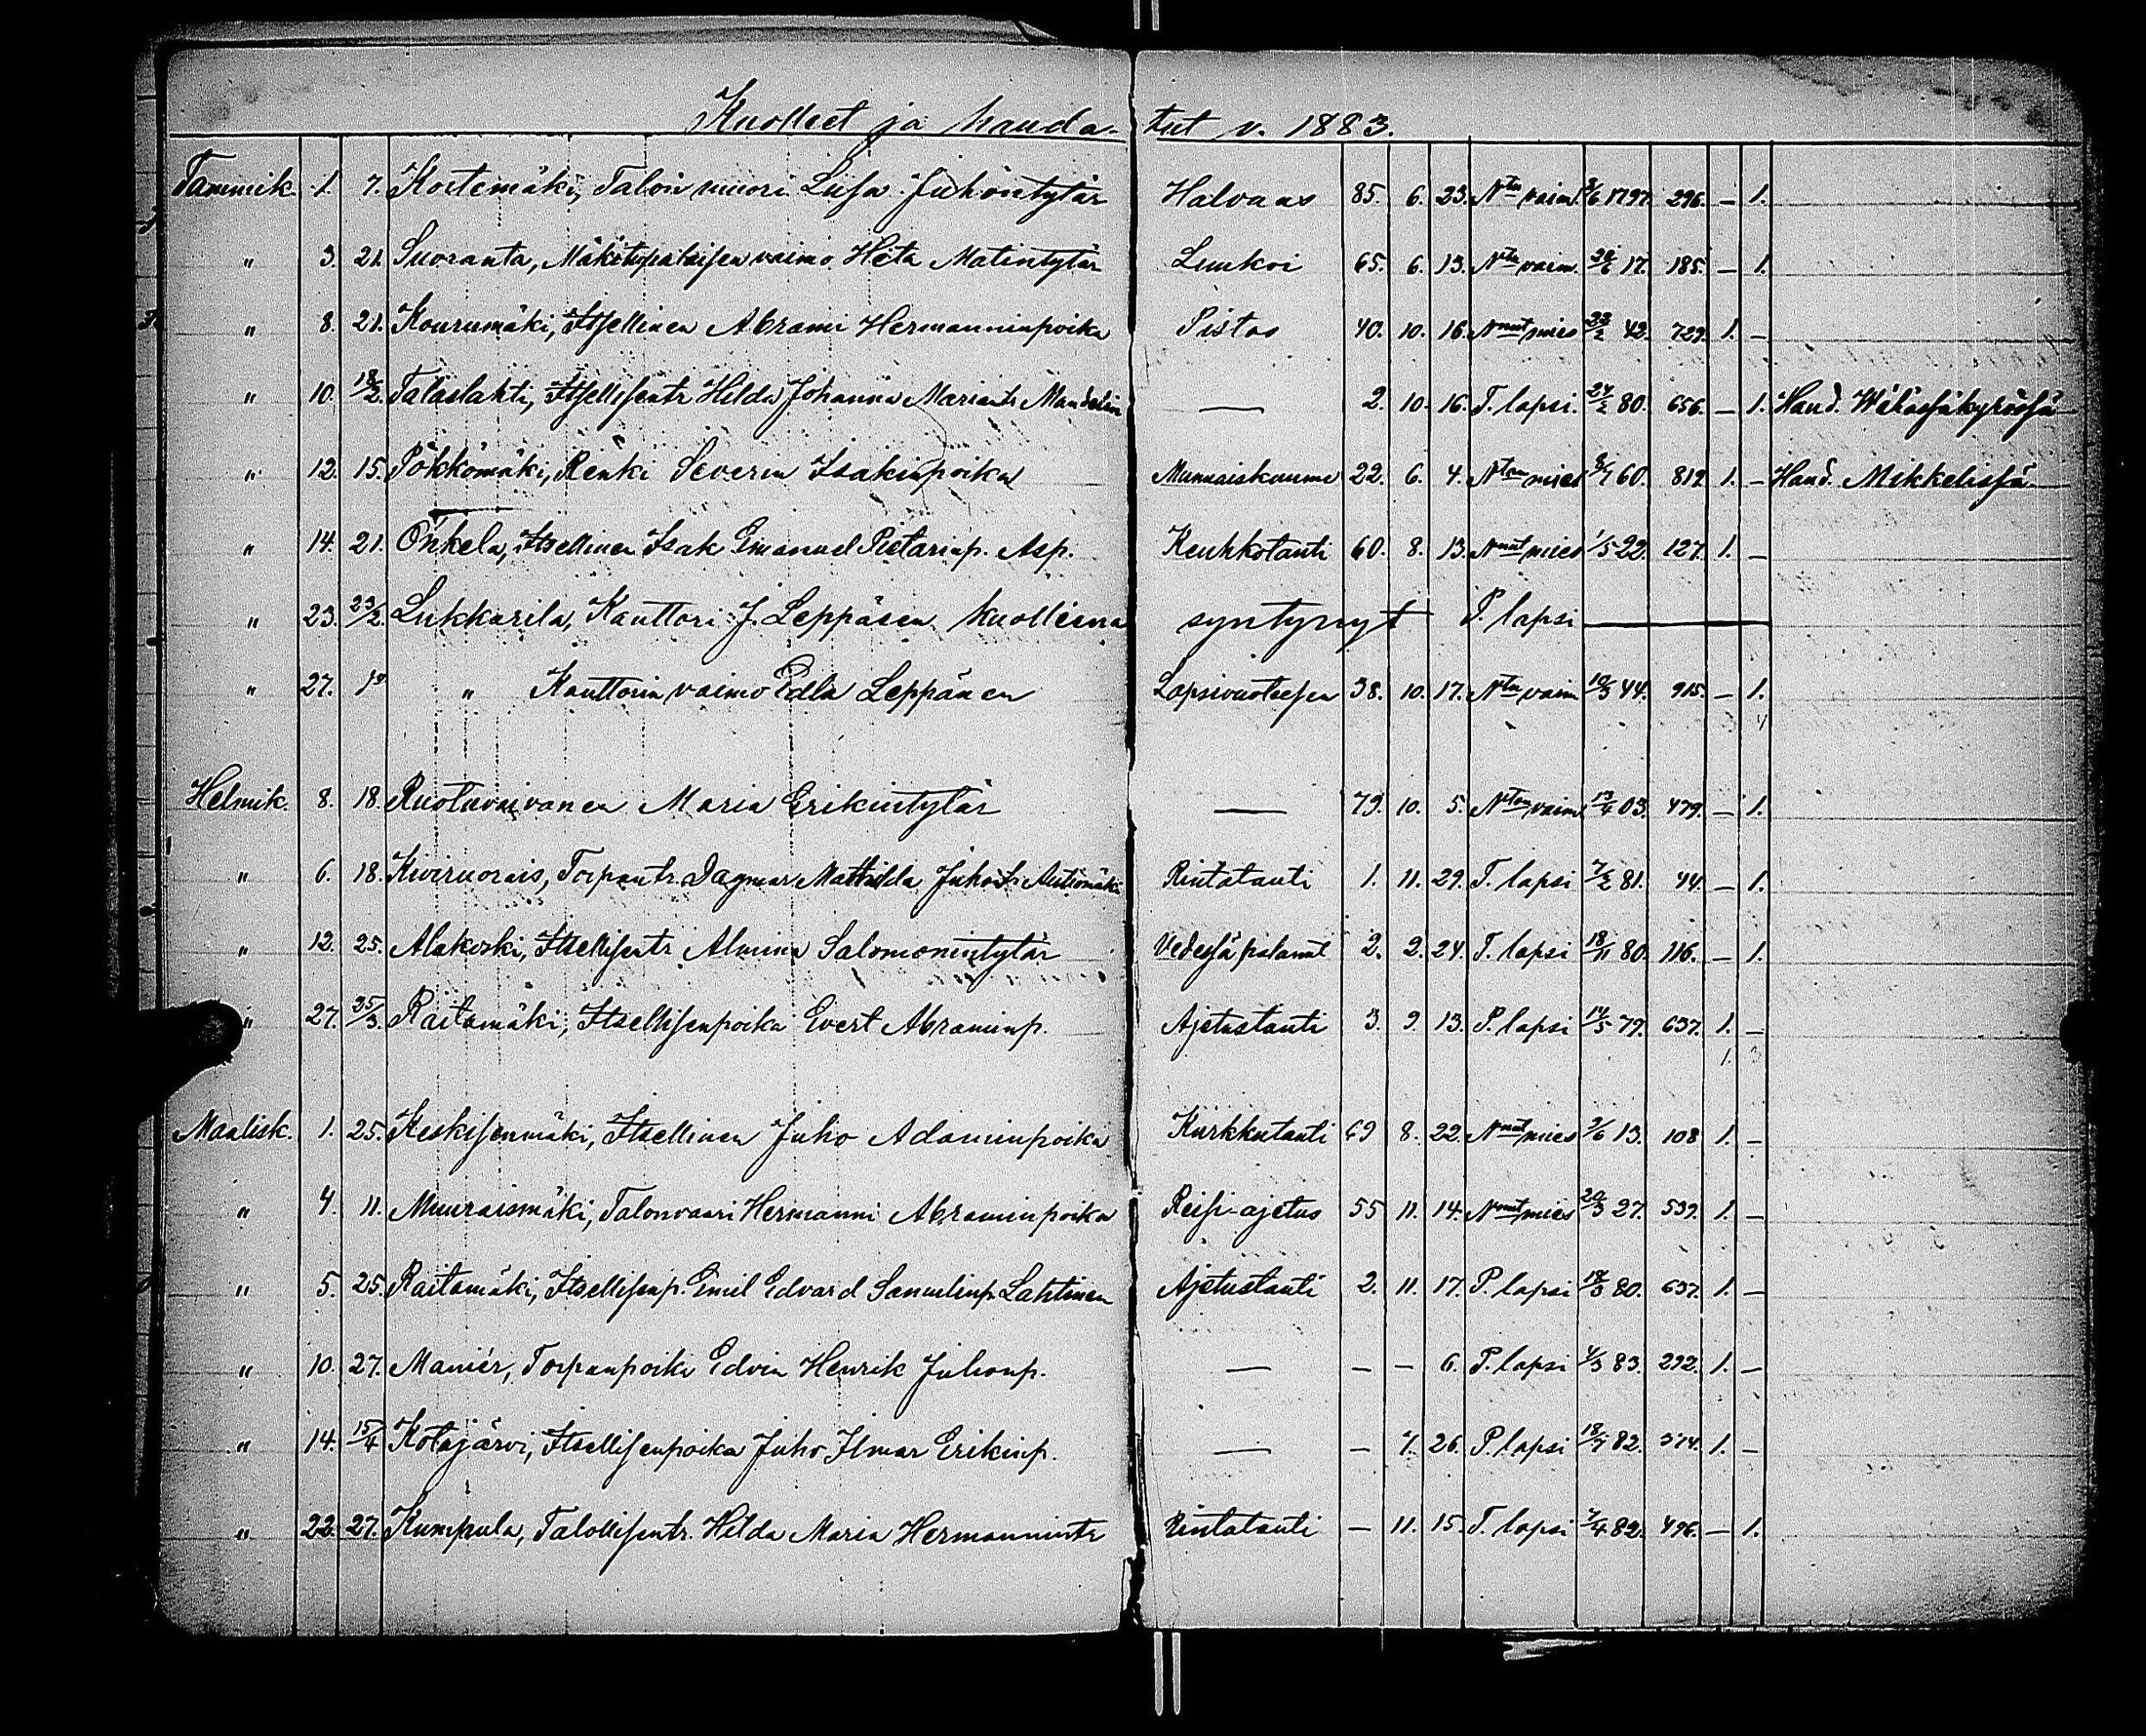 Kuolleet ja hauda- tut v. 1883.
Tammik. 1. 7. Kortemäki, Talon muori Liisa Juhontytär Halvaus 85. 6. 23. Ntu vaim. 8/6 1797. 296. — 1.
" 3. 21. Suoranta, Mäkitupalaisen vaimo Heta Matintytär Luukoi 65. 6. 13. Ntu vaim. 20/6 17. 185. — 1.
" 8. 21. Kourumäki, Itsellinen Abrami Hermanninpoika Pistos 40. 10. 16. Nnut mies 22/2 42. 729. 1. —
" 10. 18/2. Talaslahti, Itsellisentr Hilda Johanna Mariantr Mandelin — 2. 10. 16. T. lapsi. 24/2 80. 656. — 1. Haud. Wähässäkyrössä
" 12. 15. Pökkömäki, Renki Severin Isakinpoika Munuaiskuume 22. 6. 4. Nton mies 8/7 60. 819. 1. — Haud. Mikkelissä
" 14. 21. Onkela, Itsellinen Isak Emanuel Pietarinp. Asp. Keuhkotauti 60. 8. 13. Nnut mies 1/5 22. 127. 1. —
" 23. 23/2. Lukkarila, Kanttori J. Leppäsen kuolleena syntynyt P. lapsi —
" 27. " Kanttorin vaimo Edla Leppänen Lapsivuoteesen 38. 10. 17. Ntu vaim 10/3 44. 915. — 1.
4
Helmik. 8. 18. Ruotuvaivanen Maria Erikintytär — 79. 10. 5. Nton vaim 13/4 03. 479. — 1.
" 6. 18. Kiviruorais, Torpantr. Dagmar Mathilda Juhontr Autiomäki Rintatauti 1. 11. 29. T. lapsi 7/2 81. 44. — 1.
" 12. 25. Alakoski, Itsellisentr Almina Salomonintytär Vedessä palanut 2. 2. 24. T. lapsi 18/11 80. 116. — 1.
" 27. 25/3. Raitamäki, Itsellisenpoika Evert Abraminp. Ajetustauti 3. 9. 13. P. lapsi 14/5 79. 637. 1. —
1. 3
Maalisk. 1. 25. Keskisenmäki, Itsellinen Juho Adaminpoika Kurkkutauti 69 8. 22. Nnut mies 9/6 13. 108 1. —
" 4. 11. Muuraismäki, Talonvaari Hermanni Abraminpoika Reisi-ajetus 55 11. 14. Nnut mies 20/3 27. 539. 1. —
" 5. 25. Raitamäki, Itsellisenp. Emil Edvard Samulinp. Lahtinen Ajetustauti 2. 11. 17. P. lapsi 18/3 80. 637. 1. —
" 10. 27. Maniér, Torpanpoika Edvin Henrik Juhonp. — — — 6. P. lapsi 4/3 83. 292. 1. —
" 14. 15/4 Kotajärvi, Itsellisenpoika Juho Ilmar Erikinp. — — 7. 26. P. lapsi 18/7 82. 374. 1. —
" 22. 27. Kumpula, Talollisentr. Hilda Maria Hermannintr Rintatauti — 11. 15. T. lapsi 7/4 82. 496. — 1.